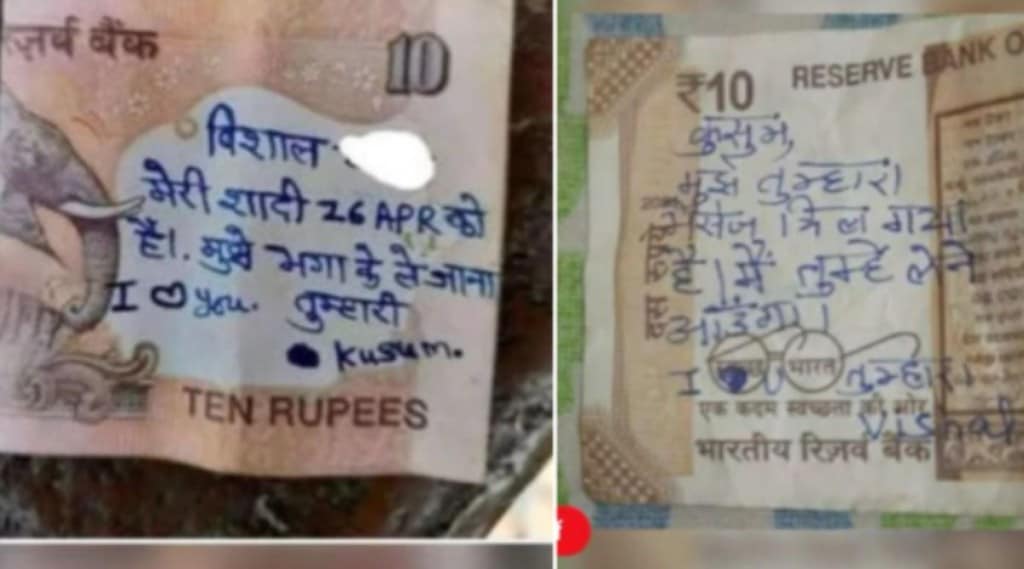 ज़र्व बैंक
10
विशाल
मेरी शादी 26 APR को
है। मुझे भगा के ले जाना
I ♡ you. तुम्हारी
kusum.
TEN RUPEES
₹10
RESERVE BANK O
कुसुम,
मुझे तुम्हारा
मेसेज मिल गया
है। में तुम्हे लेने
आऊंगा।
I U तुम्हारा
भारत
एक कदम स्वच्छता की ओर
Vishal
भारतीय रिज़र्व बैंक
दस रुपये